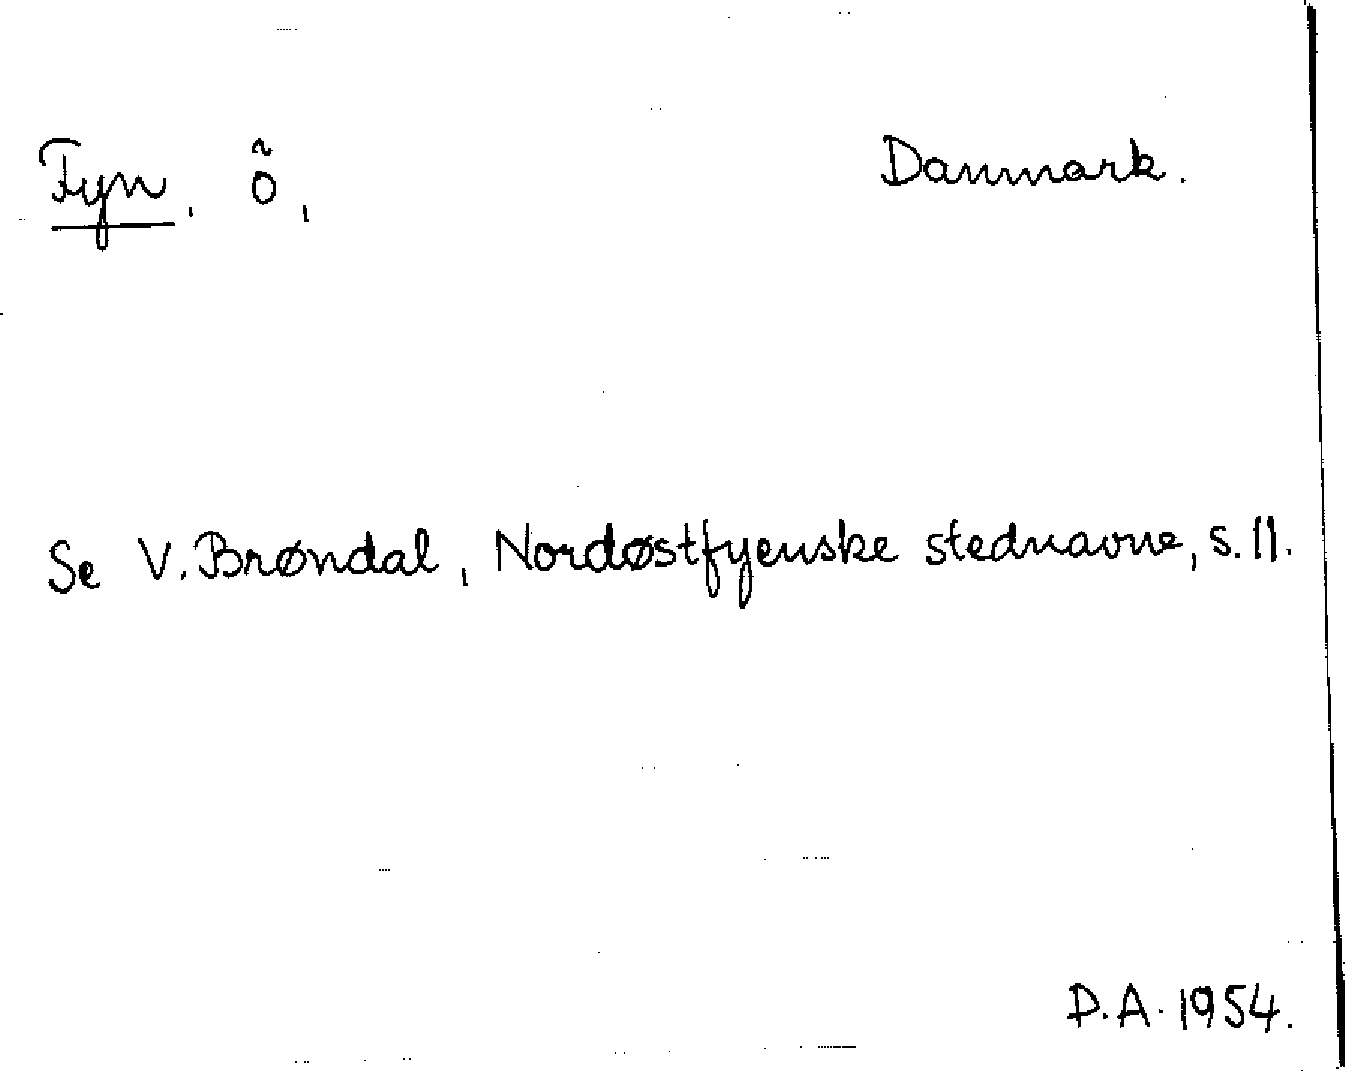 Fyn, ö, Danmark.
Se V. Brøndal, Nordøstfyenske stednavne, s. 11.
D.A. 1954.